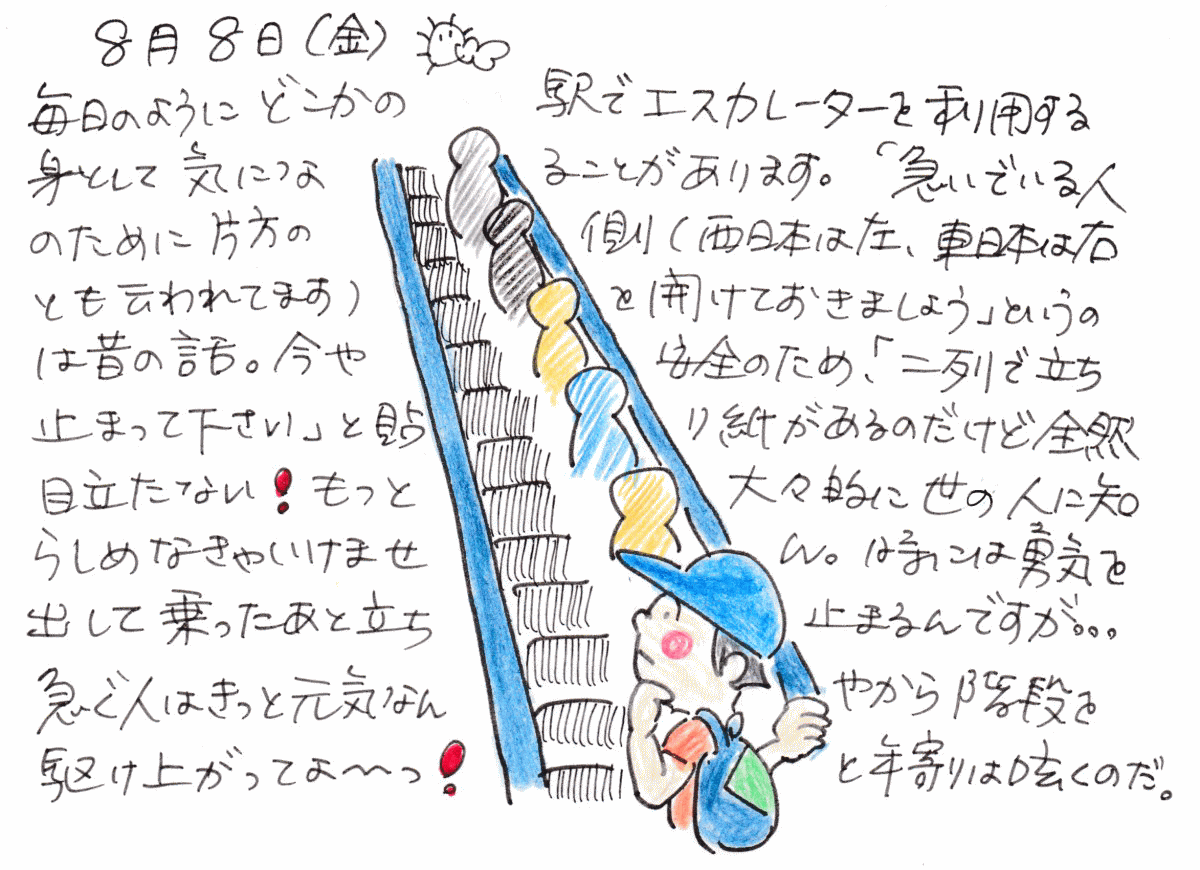 8月8日(金)
毎日のように どこかの 駅でエスカレーターを利用する
身として 気にな ることがあります。「急いでいる人
のために片方の 側(西日本は左、東日本は右
とも云われてます) を開けておきましょう」というの
は昔の話。今や 安全のため、「二列で立ち
止まって下さい」と貼 り紙があるのだけど全然
目立たない! もっと 大々的に世の人に知
らしめなきゃいけませ ん。 は勇気を
出して乗ったあと立ち 止まるんですが...
急ぐ人はきっと元気なん やから階段を
駆け上がってよ〜〜っ! と年寄りは呟くのだ。